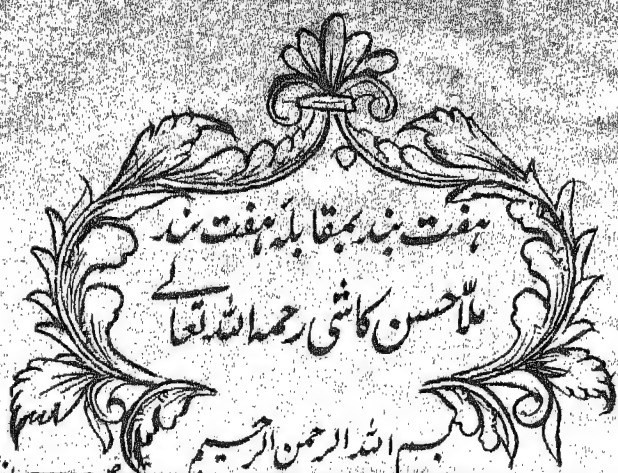 ہفت بند بمقابلہ ہفت بند
ملّا حسن کاشی رحمہ اللہ تعالے
بسم اللہ الرحمن الرحیم